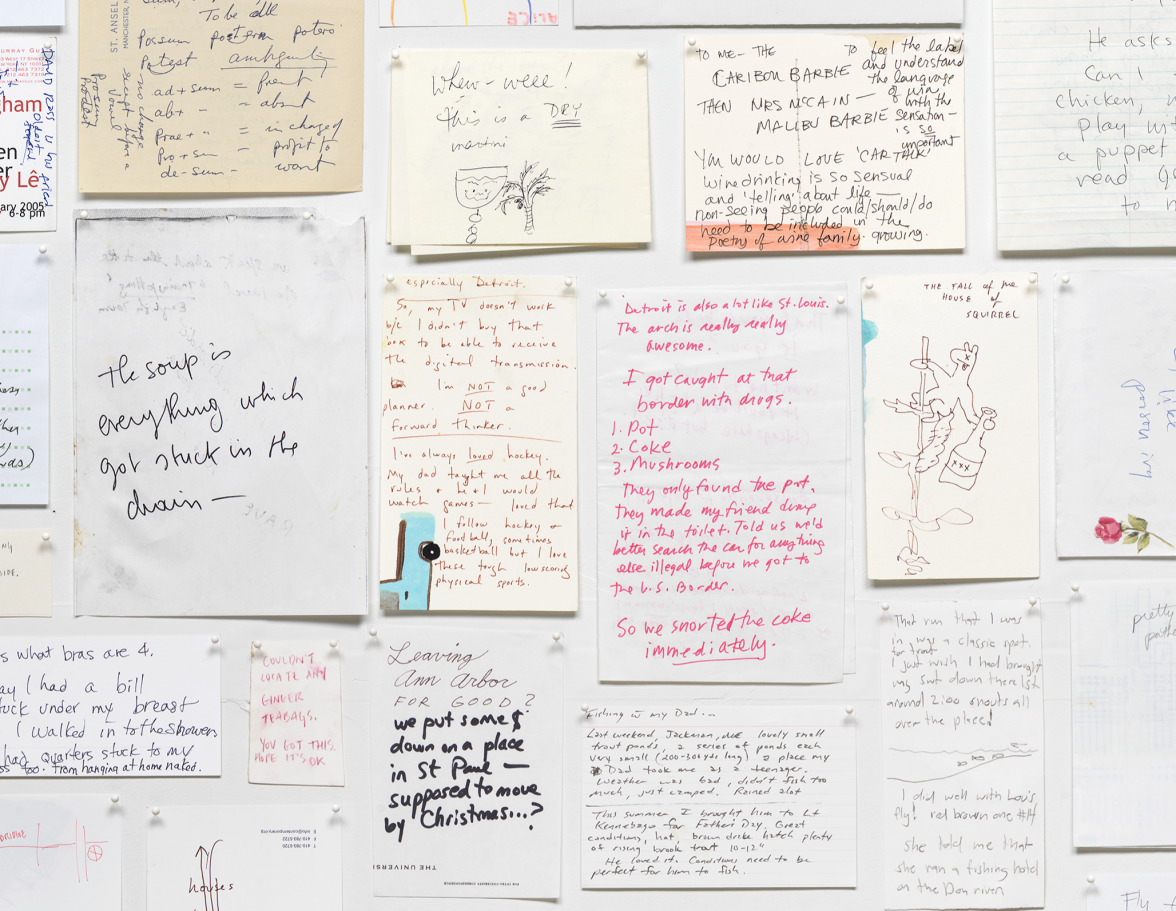 ALICE
ST. ANSEL
MANCHESTER N
To be able
Possum posterm potero
Potest ambiguity
ad + sum = present
ab + " = absent
Prae + " = in charge of
Pro + sum - profit to
de-sum - want
no change
except before a
vowel
possum
potest
URRAY GU
gham
en
er
y Lê
ary 2005
6-8 pm
whew-weee!
this is a DRY
martini
TO ME - THE
CARIBOU BARBIE
THEN MRS MCCAIN —
MALIBU BARBIE
To feel the label
and understand
the language
of wine
with the
sensation -
is so
important
YOU WOULD LOVE 'CAR TALK'
Wine drinking is so sensual
and 'telling' about life —
non-seeing people could/should/do
need to be included in the
Poetry of wine family. growing.
He asks
Can I
chicken,
play wit
a puppet
read
to
the soup is
everything which
got stuck in the
drain —
especially Detroit.
So, my TV doesn't work
b/c I didn't buy that
box to be able to receive
the digital transmission.
I'm NOT a good
planner. NOT a
forward thinker.
I've always loved hockey.
My dad taught me all the
rules + he + I would
watch games — loved that
I follow hockey +
football, sometimes
basketball but I love
these tough low scoring
physical sports.
Detroit is also a lot like St. Louis.
The arch is really really
awesome.
I got caught at that
border with drugs.
1. Pot
2. Coke
3. Mushrooms
They only found the pot.
They made my friend dump
it in the toilet. Told us we'd
better search the car for anything
else illegal before we got to
the U.S. Border.
So we snorted the coke
immediately.
THE FALL of the
HOUSE
of
SQUIRREL
XXX
person in
s what bras are 4.
ay I had a bill
tuck under my breast
I walked in to the shower
had quarters stuck to my
ss too. from hanging at home naked.
COULDN'T
LOCATE ANY
GINGER
TEABAGS.
YOU GOT THIS.
HOPE IT'S OK
Leaving
Ann Arbor
FOR GOOD?
we put some $
down on a place
in St Paul —
supposed to move
by Christmas...?
THE UNIVERSI
Fishing w my Dad...
Last weekend, Jackman, ME lovely small
trout ponds, a series of ponds each
very small (200-300 yds long) a place my
Dad took me as a teenager.
Weather was bad, didn't fish too
much, just camped. Rained alot
This summer I brought him to Lt
Kennebago for Father's Day, Great
conditions, hot, brown drake hatch plenty
of rising brook trout 10-12"
He loved it. Conditions need to be
perfect for him to fish.
That run that I was
in was a classic spot
for trout
I just wish I had brought
my
around 2:00 snouts all
over the place!
I did well with Lou's
fly! red brown one #14
she told me that
she ran a fishing hotel
on the Don river
pretty
houses
Fly